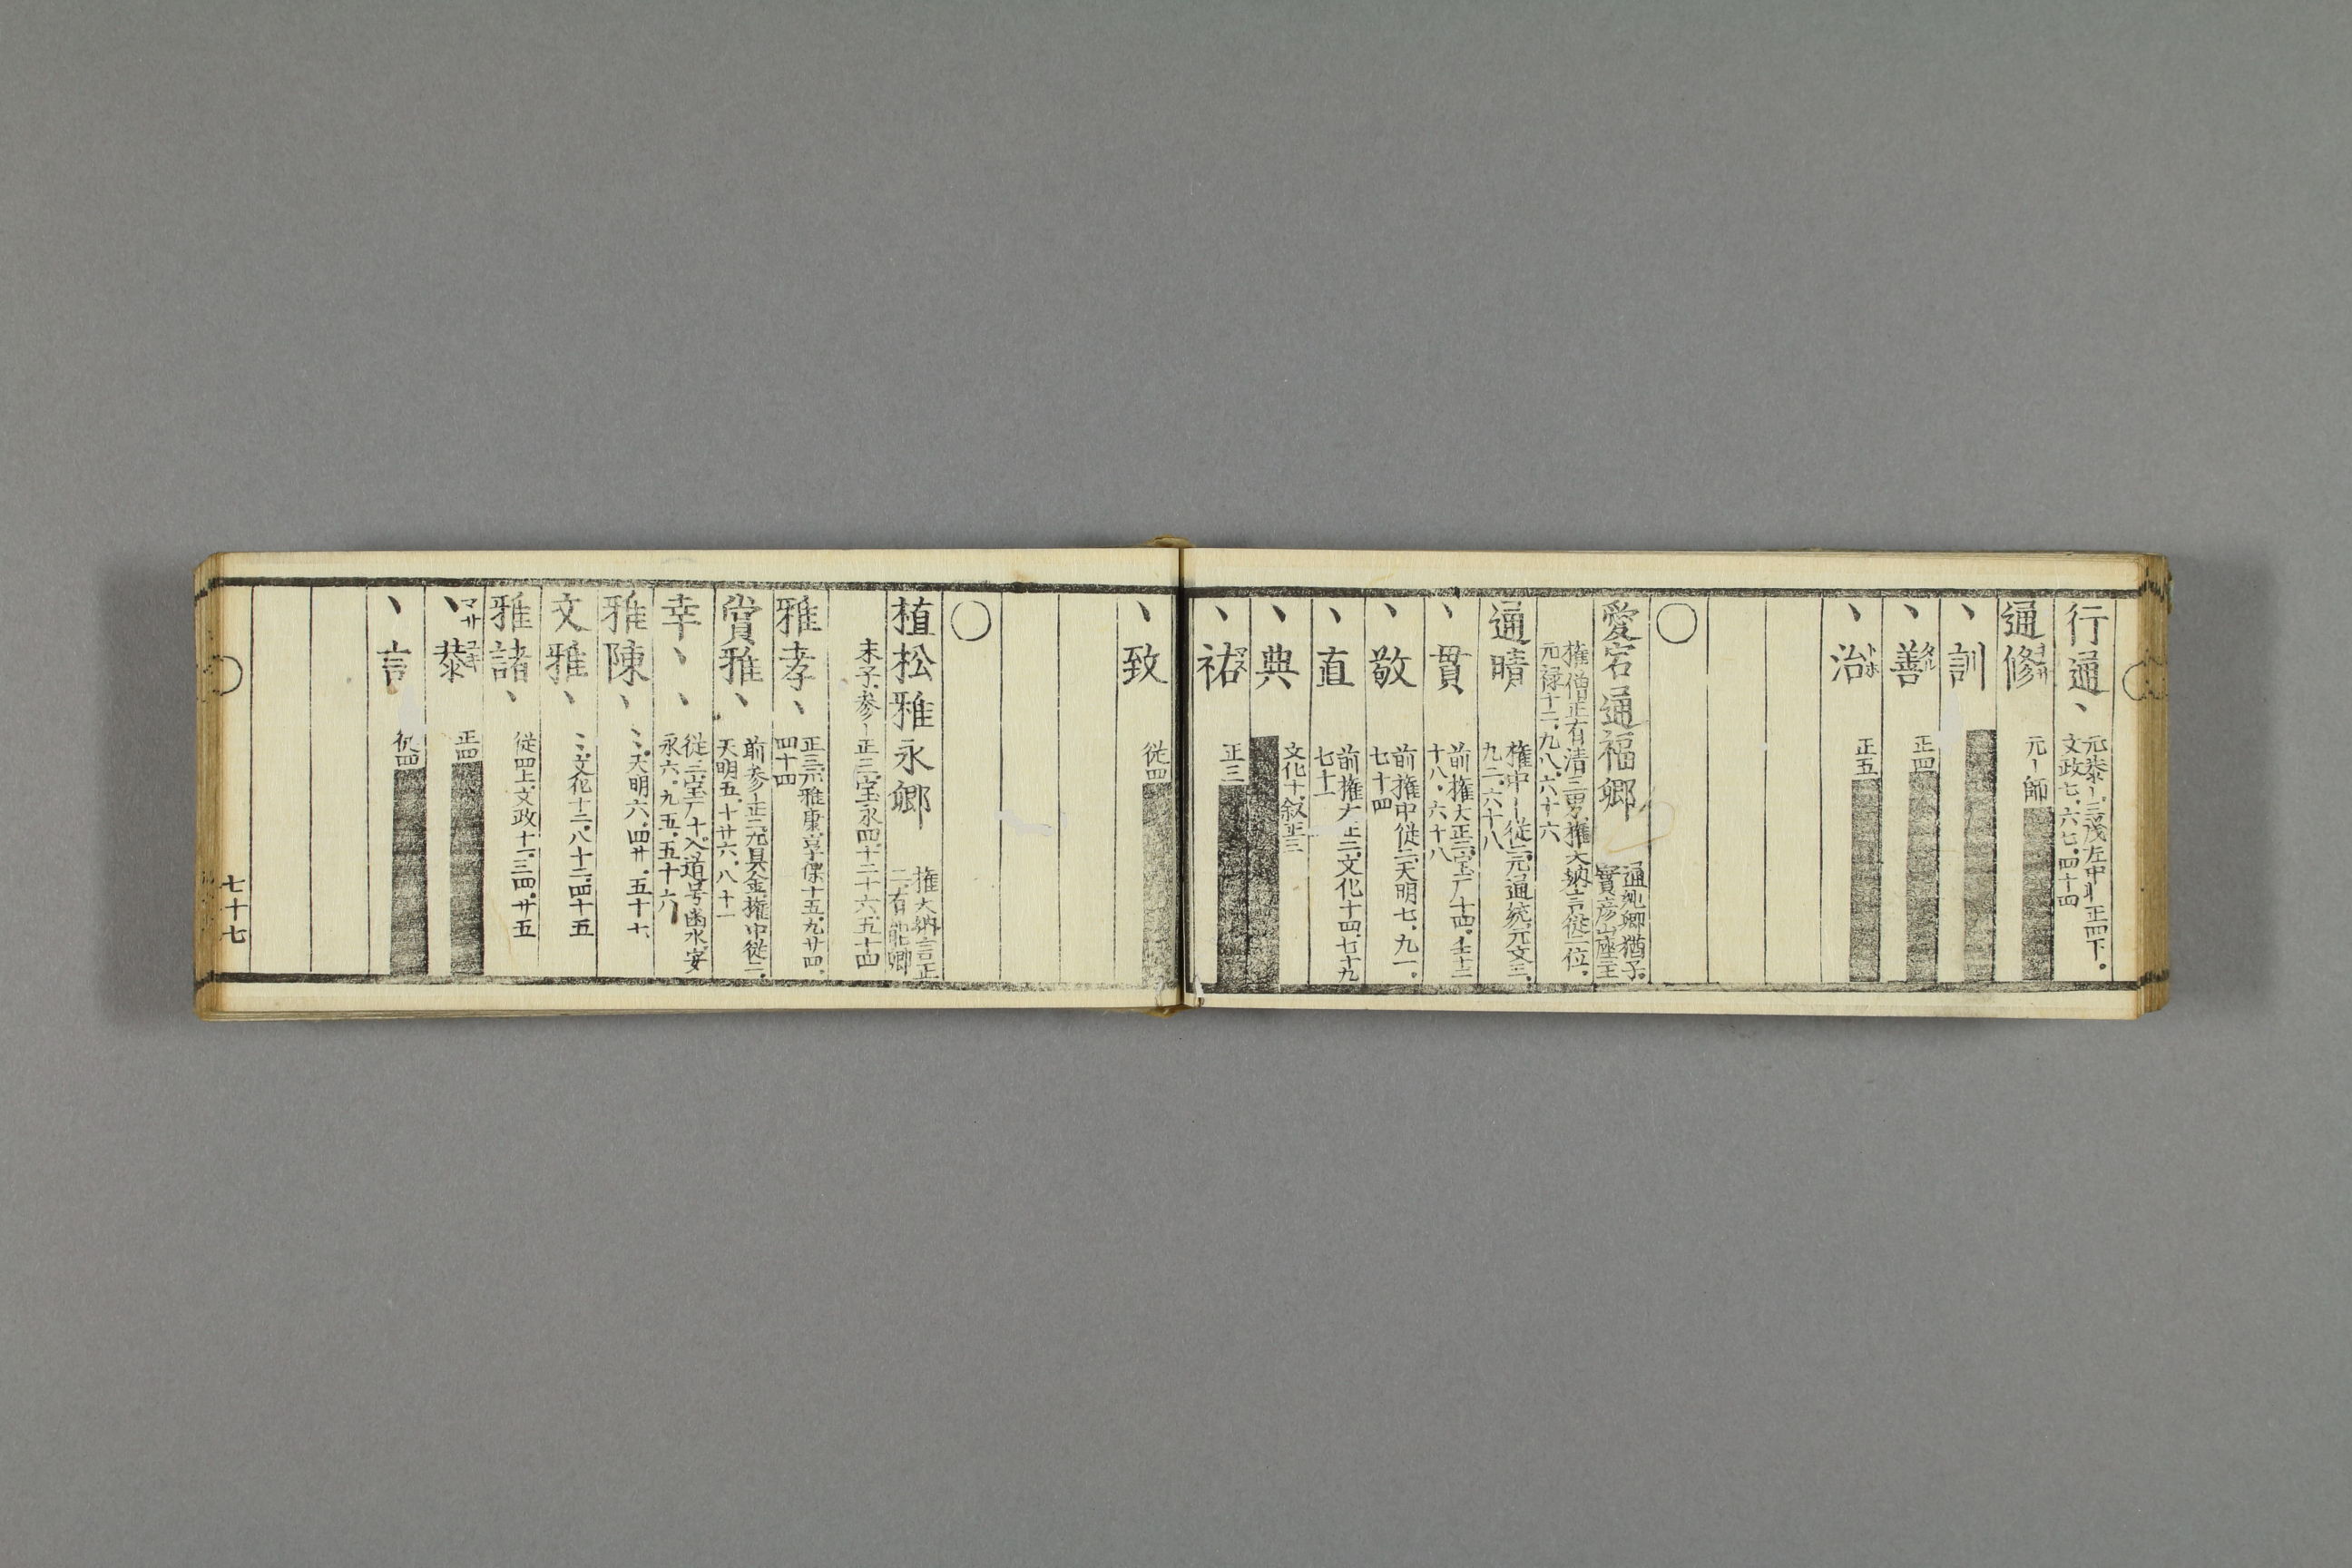 行通丶
元恭〡三茂左中〢正四下。
文政七。六七。四十四
通修
元〡師
丶訓
丶善
正四
丶治
正五
〇
愛宕通福卿
通純卿猶子。
實彦山座主
権僧正有清三男権大納言従一位。
元禄十二。九八。六十六
通晴
権中〡従二元通統元文三。
九二。六十八
丶貫
前権大正二宝厂十四。壬十二
十八。六十八
丶敬
前権中従二天明七。九一。
七十四
丶直
前権大正二。文化十四。七十九
七十一
丶典
文化十。叙正三
丶祐
正三
丶致
従四
〇
植松雅永卿
権大納言正
二有能卿
末子。参〡正三宝永四。十二十六。五十四
雅孝丶
正三宗雅康享保十五。九廿四。
四十四
賞雅丶
前参〡正二元具金権中従二。
天明五。十廿六。八十一
幸丶丶
従三宝厂十。入道号幽水。安
永六。九五。五十六
雅陳丶
〻。天明六。四廿。五十七
文雅丶
〻。文化十二。八十二。四十五
雅諸丶
従四上。文政十一。三四。廿五
丶恭
正四
丶言
従四
七十七